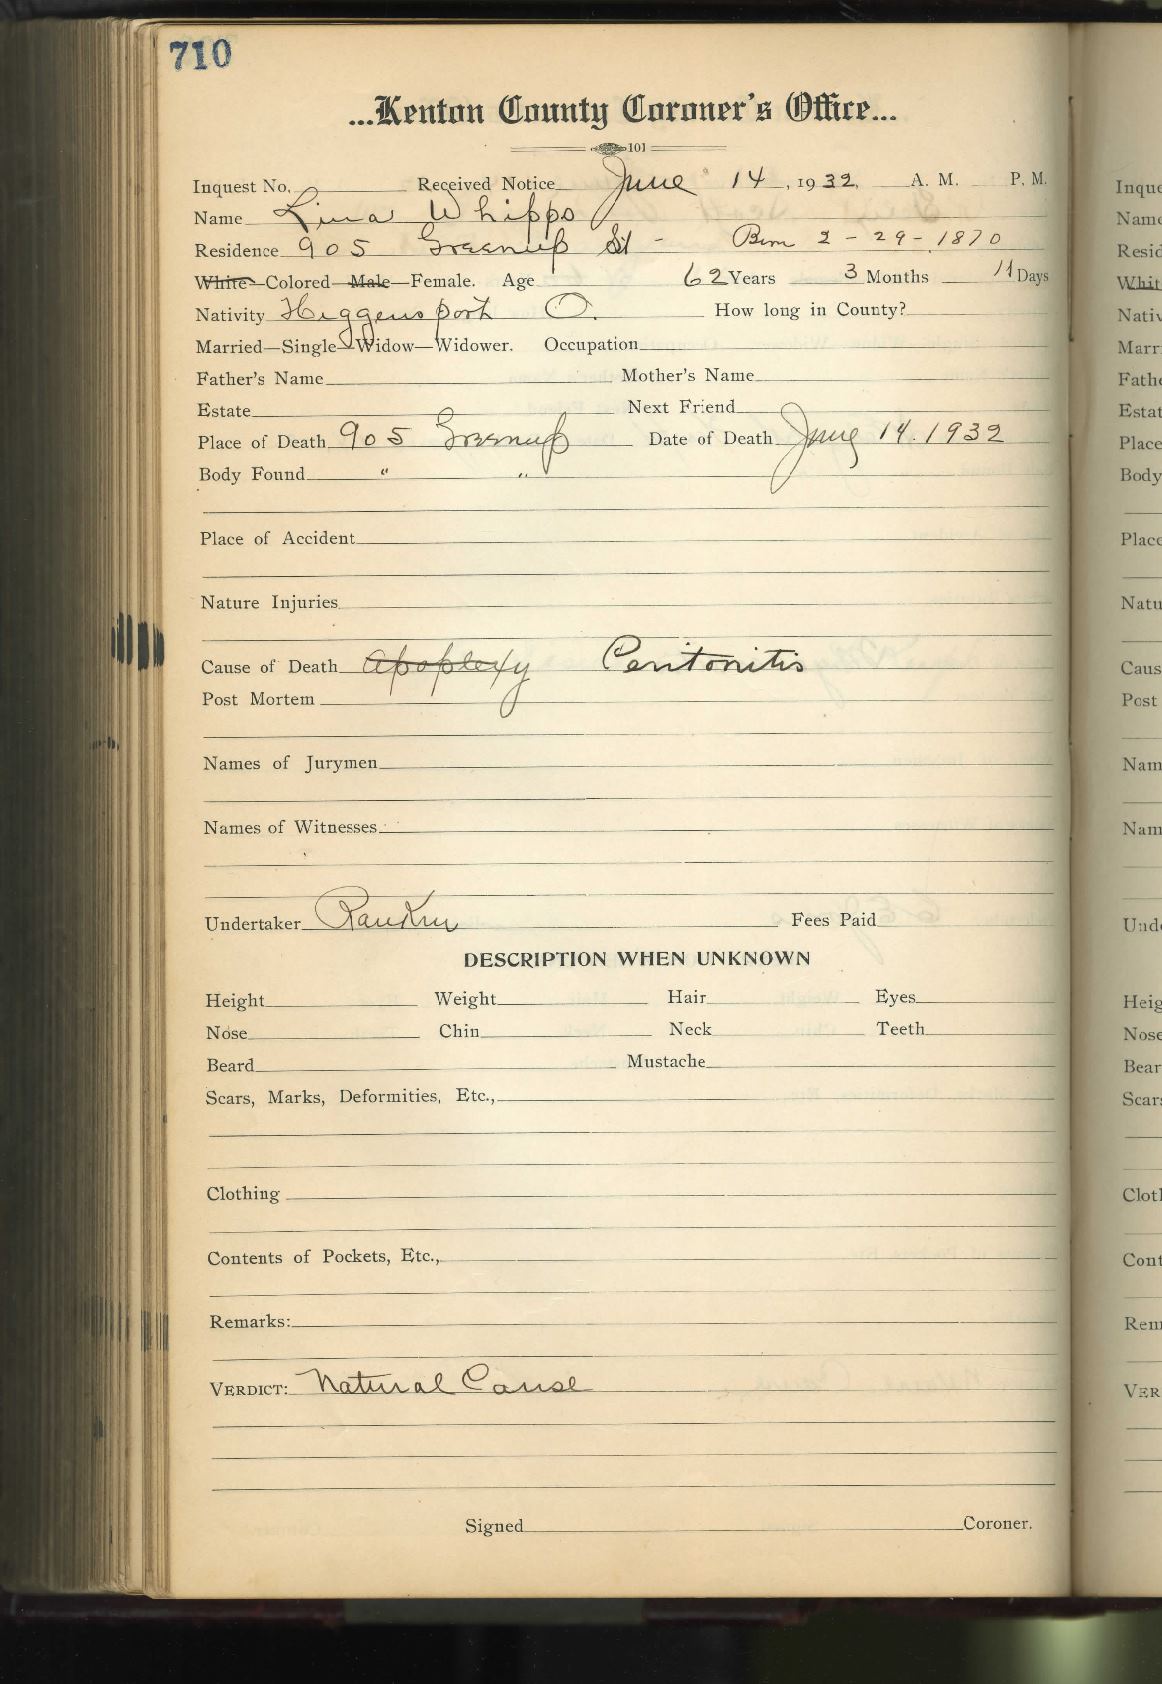 710
...Kenton County Coroner's Office...
101
Inquest No. Received Notice June 14, 1932, A. M. P. M.
Name Lina Whipps
Residence 905 Greenup St - Born 2-29-1870
White—Colored—Male—Female. Age 62 Years 3 Months 11 Days
Nativity Higgensport O. How long in County?
Married—Single—Widow—Widower. Occupation
Father's Name Mother's Name
Estate Next Friend
Place of Death 905 Greenup Date of Death June 14. 1932
Body Found " "
Place of Accident
Nature Injuries
Cause of Death Apoplexy Peritonitis
Post Mortem
Names of Jurymen
Names of Witnesses
Undertaker Rankin Fees Paid
DESCRIPTION WHEN UNKNOWN
Height Weight Hair Eyes
Nose Chin Neck Teeth
Beard Mustache
Scars, Marks, Deformities, Etc.,
Clothing
Contents of Pockets, Etc.,
Remarks:
VERDICT: Natural Cause
Signed Coroner.
Inque
Name
Resid
Whit
Nativ
Marr
Fathe
Estat
Place
Body
Place
Natu
Caus
Post
Nam
Nam
Unde
Heig
Nose
Bear
Scars
Clotl
Cont
Rem
VER